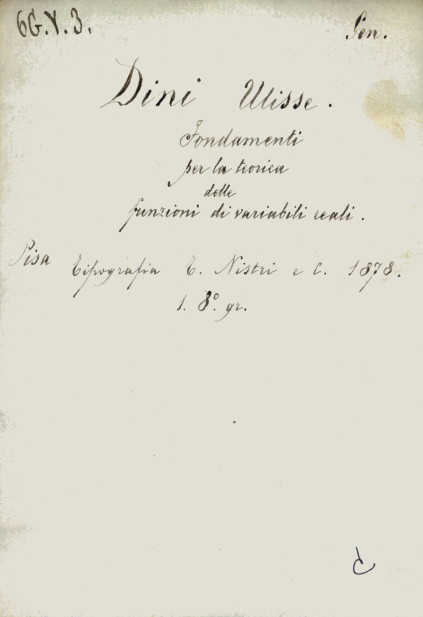 6G.V.3.
Gen.
Dini Ulisse.
Fondamenti
per la teorica
delle
funzioni di variabili reali.
Pisa Tipografia T. Nistri e C. 1878.
1. 8º. gr.